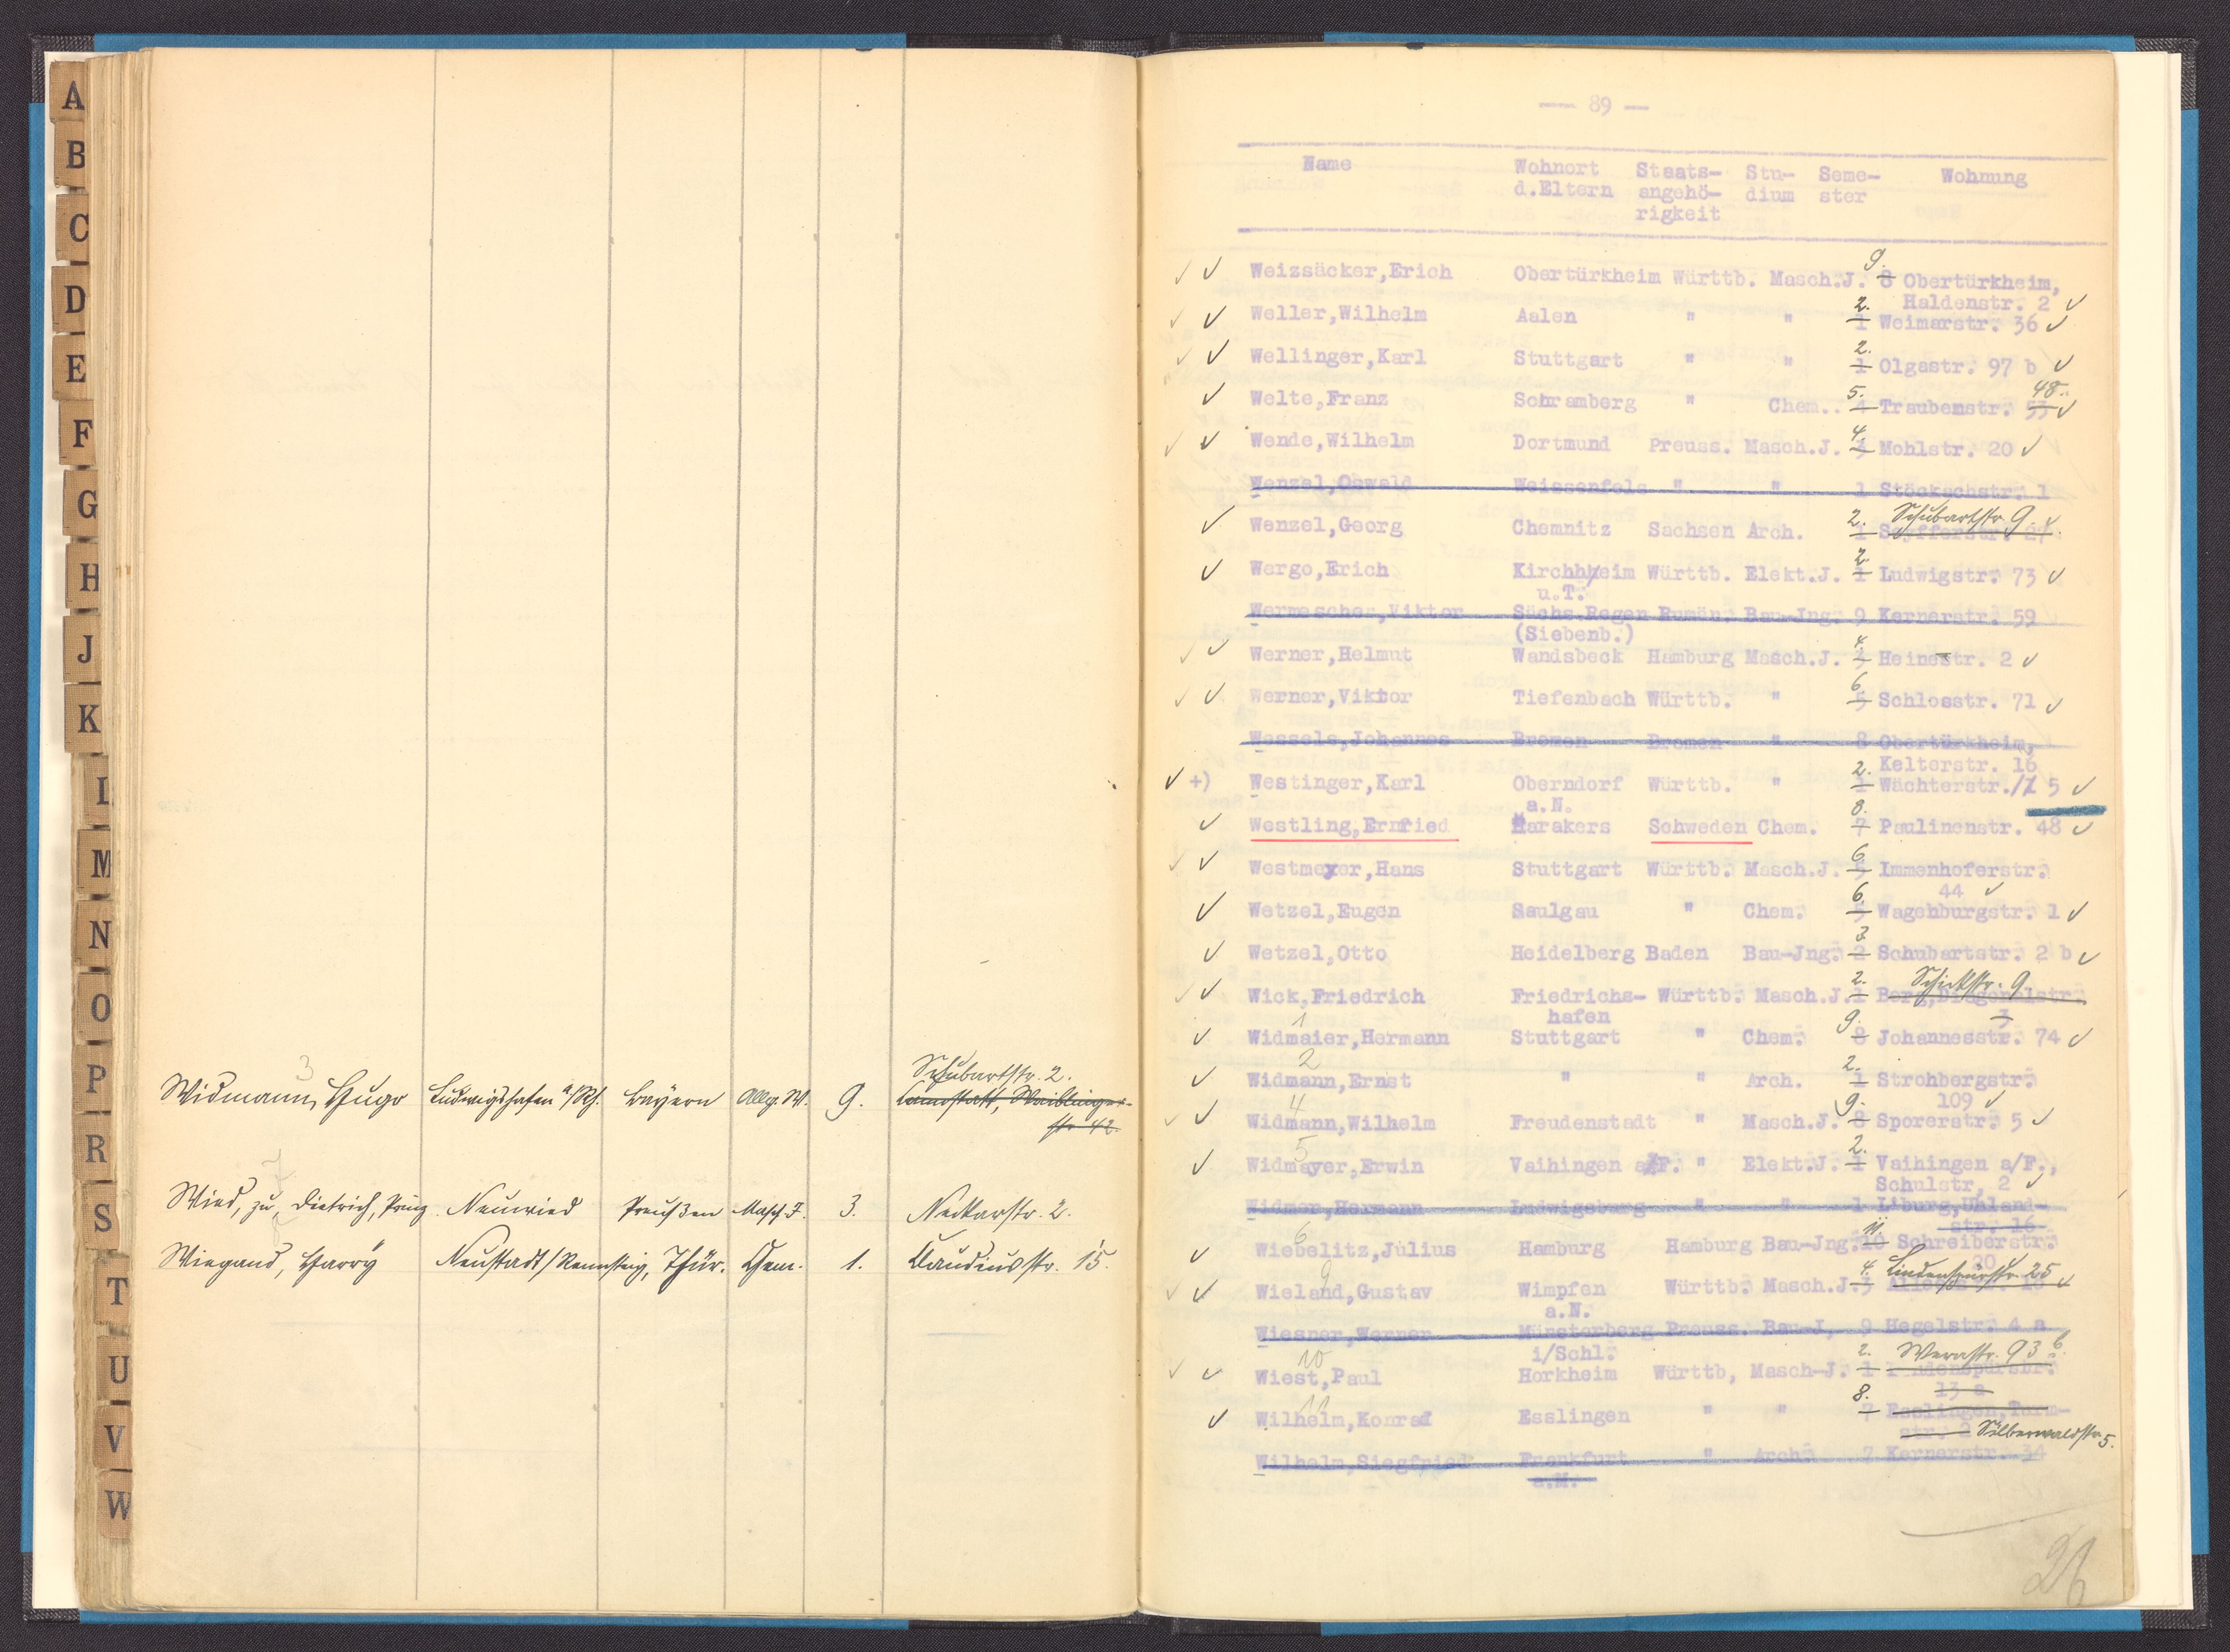 A
B
C
D
E
F
G
H
J
K
L
M
N
O
P
R
S
T
U
V
W
3
Schubartstr. 2.
Widmann, Hugo Ludwigshafen a/Rh. Bayern Allg. W. 9. Cannstatt, Waiblinger-
str. 42.
7
Wied, zu, Dietrich, Prinz Neuwied Preußen Masch. J. 3. Neckarstr. 2.
Wiegand, Harry Neustadt/Rennsteig, Thür. Chem. 1. Claudiusstr. 15.
— 89 —
Name Wohnort Staats- Stu- Seme- Wohnung
d.Eltern angehö- dium ster
rigkeit
9.
✓ ✓ Weizsäcker,Erich Obertürkheim Württb. Masch.J. 8 Obertürkheim,
2. Haldenstr. 2 ✓
✓ ✓ Weller,Wilhelm Aalen " " 1 Weimarstr. 36 ✓
2.
✓ ✓ Wellinger,Karl Stuttgart " " 1 Olgastr. 97 b ✓
5. 48.
✓ Welte,Franz Schramberg " Chem.. 4 Traubenstr. 53 ✓
4.
✓ ✓ Wende,Wilhelm Dortmund Preuss. Masch.J. 3 Mohlstr. 20 ✓
Wenzel,Oswald Weissenfels " " 1 Stöckachstr. 1
2. Schubartstr. 9. ✓
✓ Wenzel,Georg Chemnitz Sachsen Arch. 1 Seyfferstr. 27
2.
✓ Wergo,Erich Kirchhheim Württb. Elekt.J. 1 Ludwigstr. 73 ✓
u.T.
Wermescher,Viktor Sächs.Regen Rumän. Bau-Jng. 9 Kernerstr. 59
(Siebenb.) 4.
✓ ✓ Werner,Helmut Wandsbeck Hamburg Masch.J. 3 Heinestr. 2 ✓
6.
✓ ✓ Werner,Viktor Tiefenbach Württb. " 5 Schlosstr. 71 ✓
Wessels,Johannes Bremen Bremen " 8 Obertürkheim,
2. Kelterstr. 16
✓ +) Westinger,Karl Oberndorf Württb. " 1 Wächterstr. 5 ✓
a.N. 8.
✓ Westling,Ernfried Harakers Schweden Chem. 7 Paulinenstr. 48 ✓
6.
✓ ✓ Westmeyer,Hans Stuttgart Württb. Masch.J. 5 Immenhoferstr.
6. 44 ✓
✓ Wetzel,Eugen Saulgau " Chem. 5 Wagenburgstr. 1 ✓
3.
✓ Wetzel,Otto Heidelberg Baden Bau-Jng. 2 Schubartstr. 2 b ✓
2. Schickstr. 9
✓ ✓ Wick,Friedrich Friedrichs- Württb. Masch.J. 1 Berg,
1 hafen 9. 3
✓ Widmaier,Hermann Stuttgart " Chem. 8 Johannesstr. 74 ✓
2 2.
✓ Widmann,Ernst " " Arch. 1 Strohbergstr.
4 9. 109 ✓
✓ ✓ Widmann,Wilhelm Freudenstadt " Masch.J. 8 Sporerstr. 5 ✓
5 2.
✓ Widmayer,Erwin Vaihingen a/F. " Elekt.J. 1 Vaihingen a/F.,
Schulstr, 2 ✓
Widmer,Hermann Ludwigsburg " " 1 L'burg,Uhland-
6 11. str. 16
✓ Wiebelitz,Julius Hamburg Hamburg Bau-Jng. 10 Schreiberstr.
9 4. 20 Lindenspürstr. 25
✓ ✓ Wieland,Gustav Wimpfen Württb. Masch.J. 3 ✓
a.N.
Wiesner,Werner Münsterberg Preuss. Bau-J, 9 Hegelstr. 4 a
10 i/Schl. 2. Werastr. 93 b.
✓ ✓ Wiest,Paul Horkheim Württb, Masch-J. 1 Lindenspürstr.
11 8. 13 a
✓ Wilhelm,Konrad Esslingen " " 7 Esslingen,Turm-
str. 2 Silberwaldstr. 5.
Wilhelm,Siegfried Frankfurt " Arch. 7 Kernerstr. 34
a.M.
26